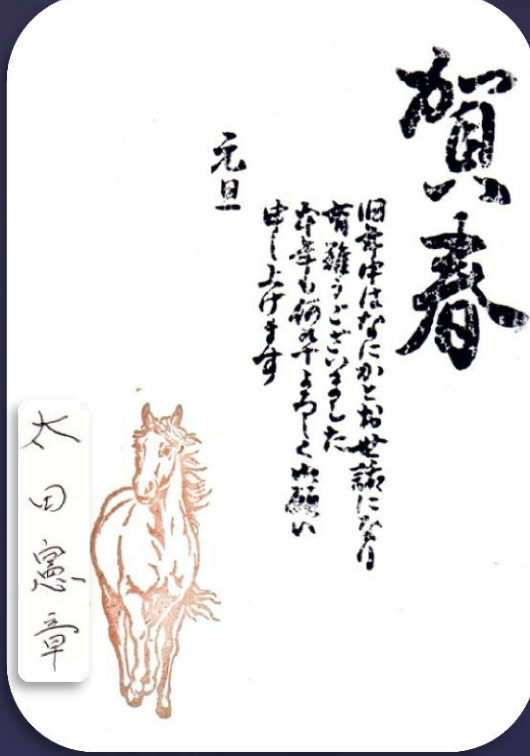 賀春
旧年中はなにかとお世話になり
有難うございました
本年も何卒よろしく御願い
申し上げます
元旦
太田憲章